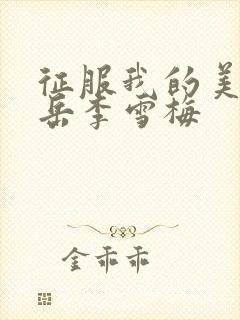 征服我的美
岳李雪梅
金乖乖